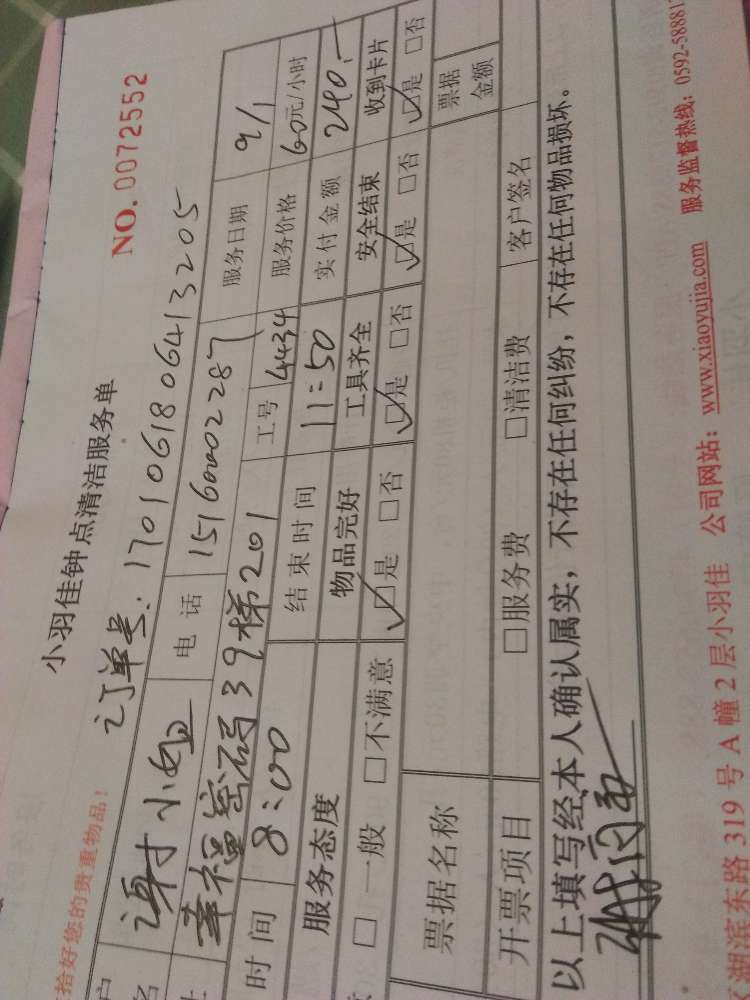 小羽佳钟点清洁服务单
NO. 0072552
拾好您的贵重物品！ 订单号：1701061806413205
户 谢小姐 电话 15160002287 服务日期 9/1
幸福密码39梯201 工号 4434 服务价格 60元/小时
时间 8:00 结束时间 11:50 实付金额 240.-
服务态度 物品完好 工具齐全 安全结束 收到卡片
□一般 □不满意 ☑是 □否 ☑是 □否 ☑是 □否 ☑是 □否
票据名称 票据金额
开票项目 □服务费 □清洁费 客户签名
以上填写经本人确认属实，不存在任何纠纷，不存在任何物品损坏。
湖滨东路 319 号 A 幢 2 层小羽佳 公司网站：www.xiaoyujia.com 服务监督热线：0592-58881